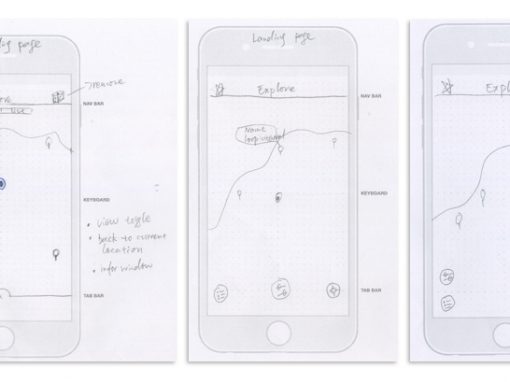 Landing page
remove
NAV BAR
KEYBOARD
• view toggle
• back to current
location
• infor window
TAB BAR
Landing page
Explore
Name
NAV BAR
KEYBOARD
TAB BAR